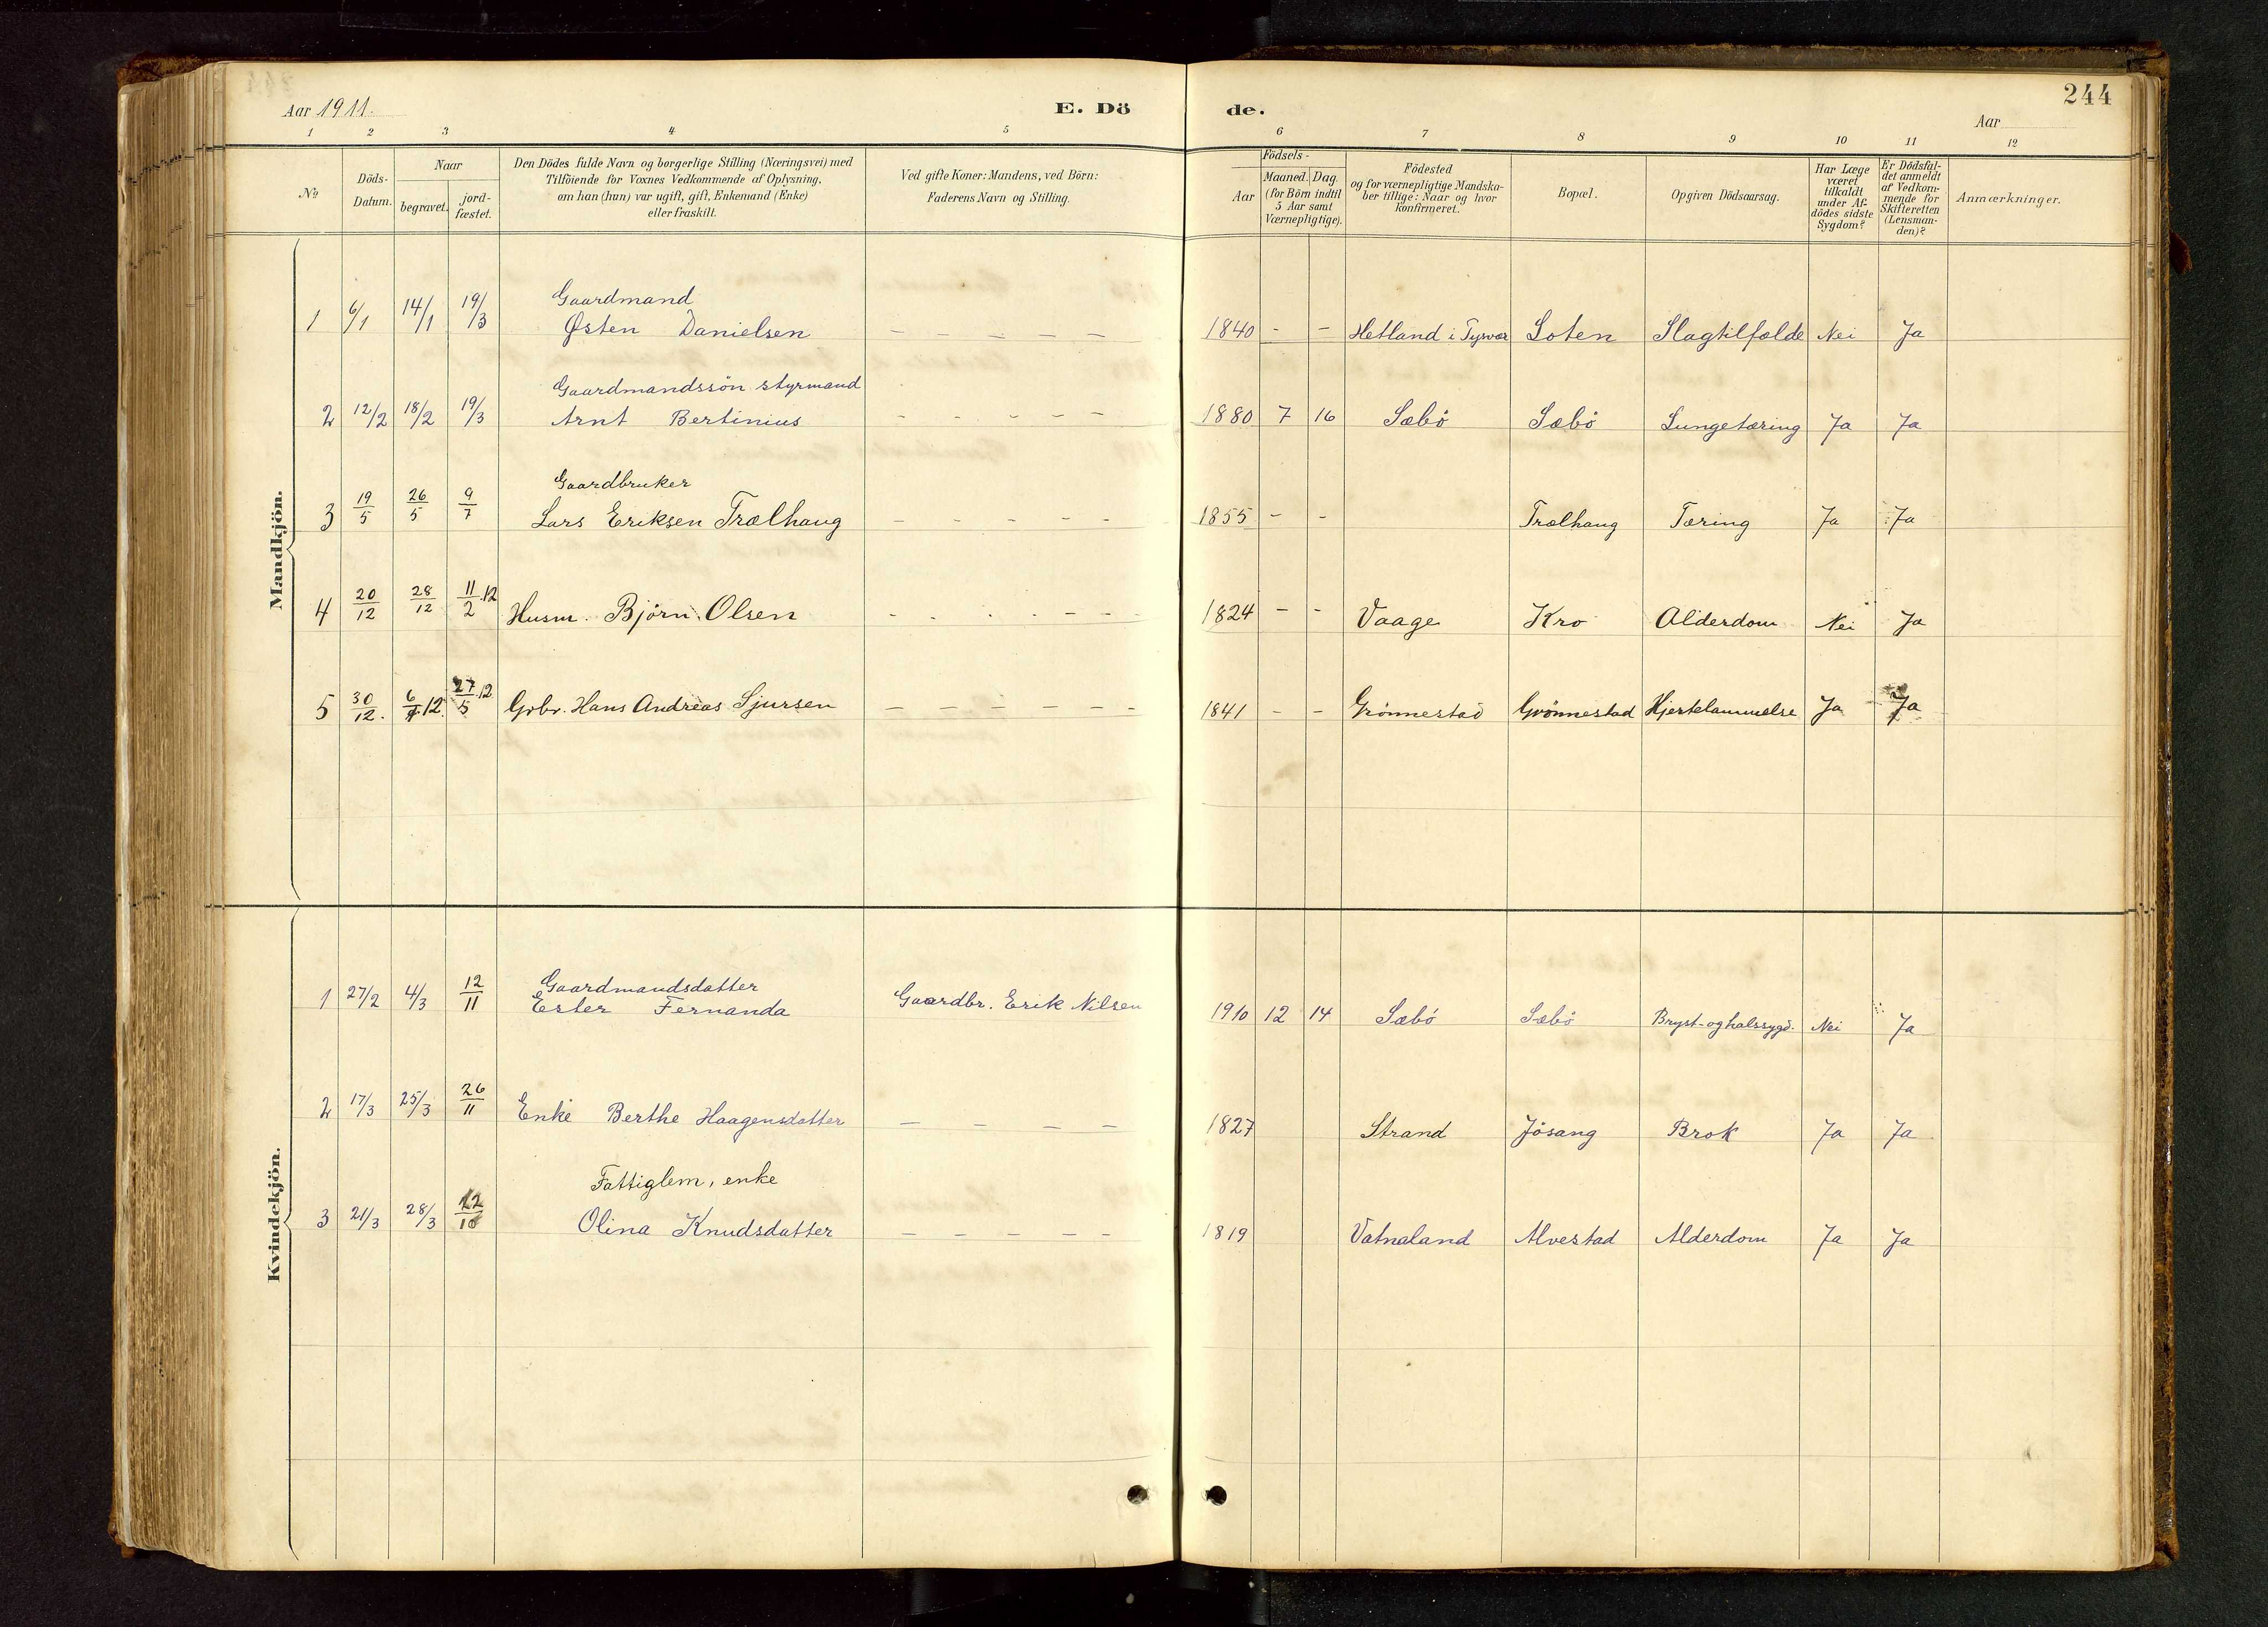 244
Aar 1911.
E. Dö
de.
Aar
1 2 3 4 5 6 7 8 9 10 11 12
No
Döds-
Datum.
Naar
begravet.
jord-
fæstet.
Den Dödes fulde Navn og borgerlige Stilling (Næringsvei) med
Tilföiende for Voxnes Vedkommende af Oplysning,
om han (hun) var ugift, gift, Enkemand (Enke)
eller fraskilt.
Ved gifte Koner: Mandens, ved Börn:
Faderens Navn og Stilling.
Födsels-
Aar
Maaned. Dag.
(for Börn indtil
5 Aar samt
Værnepligtige).
Födested
og for værnepligtige Mandska-
ber tillige: Naar og hvor
konfirmeret.
Bopæl.
Opgiven Dödsaarsag.
Har Læge
været
tilkaldt
under Af-
dödes sidste
Sygdom?
Er Dödsfal-
det anmeldt
af Vedkom-
mende for
Skifteretten
(Lensman-
den)?
Anmærkninger.
Mandkjön.
Gaardmand
1 6/1 14/1 19/3 Østen Danielsen – – – – – 1840 - - Hetland i Tysvær Loten Slagtilfælde Nei Ja
Gaardmandssön styrmand
2 12/2 18/2 19/3 Arnt Bertinius – – – – – 1880 7 16 Sæbö Sæbö Lungetæring Ja Ja
Gaardbruker
3 19/5 26/5 9/7 Lars Eriksen Trælhaug – – – – – 1855 - - Trælhaug Tæring Ja Ja
4 20/12 28/12 11/2.12 Husm. Björn Olsen - - - - - 1824 - - Vaage Kro Alderdom Nei Ja
5 30/12. 6/1 12. 27/5.12 Grbr. Hans Andreas Sjursen – – – – – – 1841 - - Grönnestad Grönnestad Hjertelammelse Ja Ja
Kvindekjön.
Gaardmandsdatter
1 27/2 4/3 12/11 Ester Fernanda Gaardbr. Erik Nilsen 1910 12 14 Sæbö Sæbö Bryst- og halssygd. Nei Ja
2 17/3 25/3 26/11 Enke Berthe Haagensdatter – – – – 1827 Strand Jösang Brok Ja Ja
Fattiglem, enke
3 21/3 28/3 22/10 Olina Knudsdatter – – – – – 1819 Vatnaland Alvestad Alderdom Ja Ja